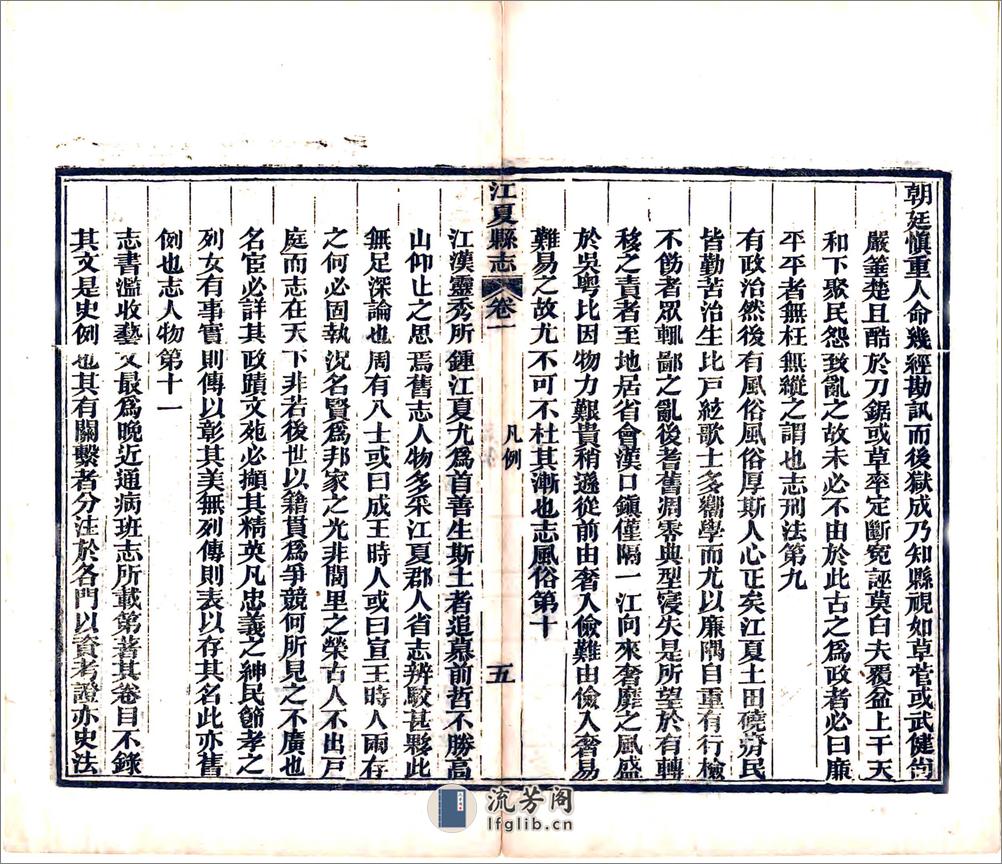 朝廷慎重人命幾經勘訊而後獄成乃知縣視如草菅或武健尙
嚴箠楚且酷於刀鋸或草率定斷寃誣莫白夫覆盆上干天
和下聚民怨致亂之故未必不由於此古之爲政者必曰廉
平平者無枉無縱之謂也志刑法第九
有政治然後有風俗風俗厚斯人心正矣江夏土田磽瘠民
皆勤苦治生比戸絃歌士多嚮學而尤以廉隅自重有行檢
不飭者眾輒鄙之亂後耆舊凋零典型寖失是所望於有轉
移之責者至地居省會漢口鎭僅隔一江向來奢靡之風盛
於吳粤比因物力艱貴稍遜從前由奢入儉難由儉入奢易
難易之故尤不可不杜其漸也志風俗第十
江夏縣志 卷一 凡例 五
江漢靈秀所鍾江夏尤爲首善生斯土者追慕前哲不勝高
山仰止之思焉舊志人物多采江夏郡人省志辨駮甚夥此
無足深論也周有八士或曰成王時人或曰宣王時人兩存
之何必固執況名賢爲邦家之光非閭里之榮古人不出戸
庭而志在天下非若後世以籍貫爲爭競何所見之不廣也
名宦必詳其政蹟文苑必擷其精英凡忠義之紳民節孝之
列女有事實則傳以彰其美無列傳則表以存其名此亦舊
例也志人物第十一
志書濫收藝文最爲晚近通病班志所載第著其卷目不錄
其文是史例也其有關繫者分注於各門以資考證亦史法
流芳阁
lfglib.cn